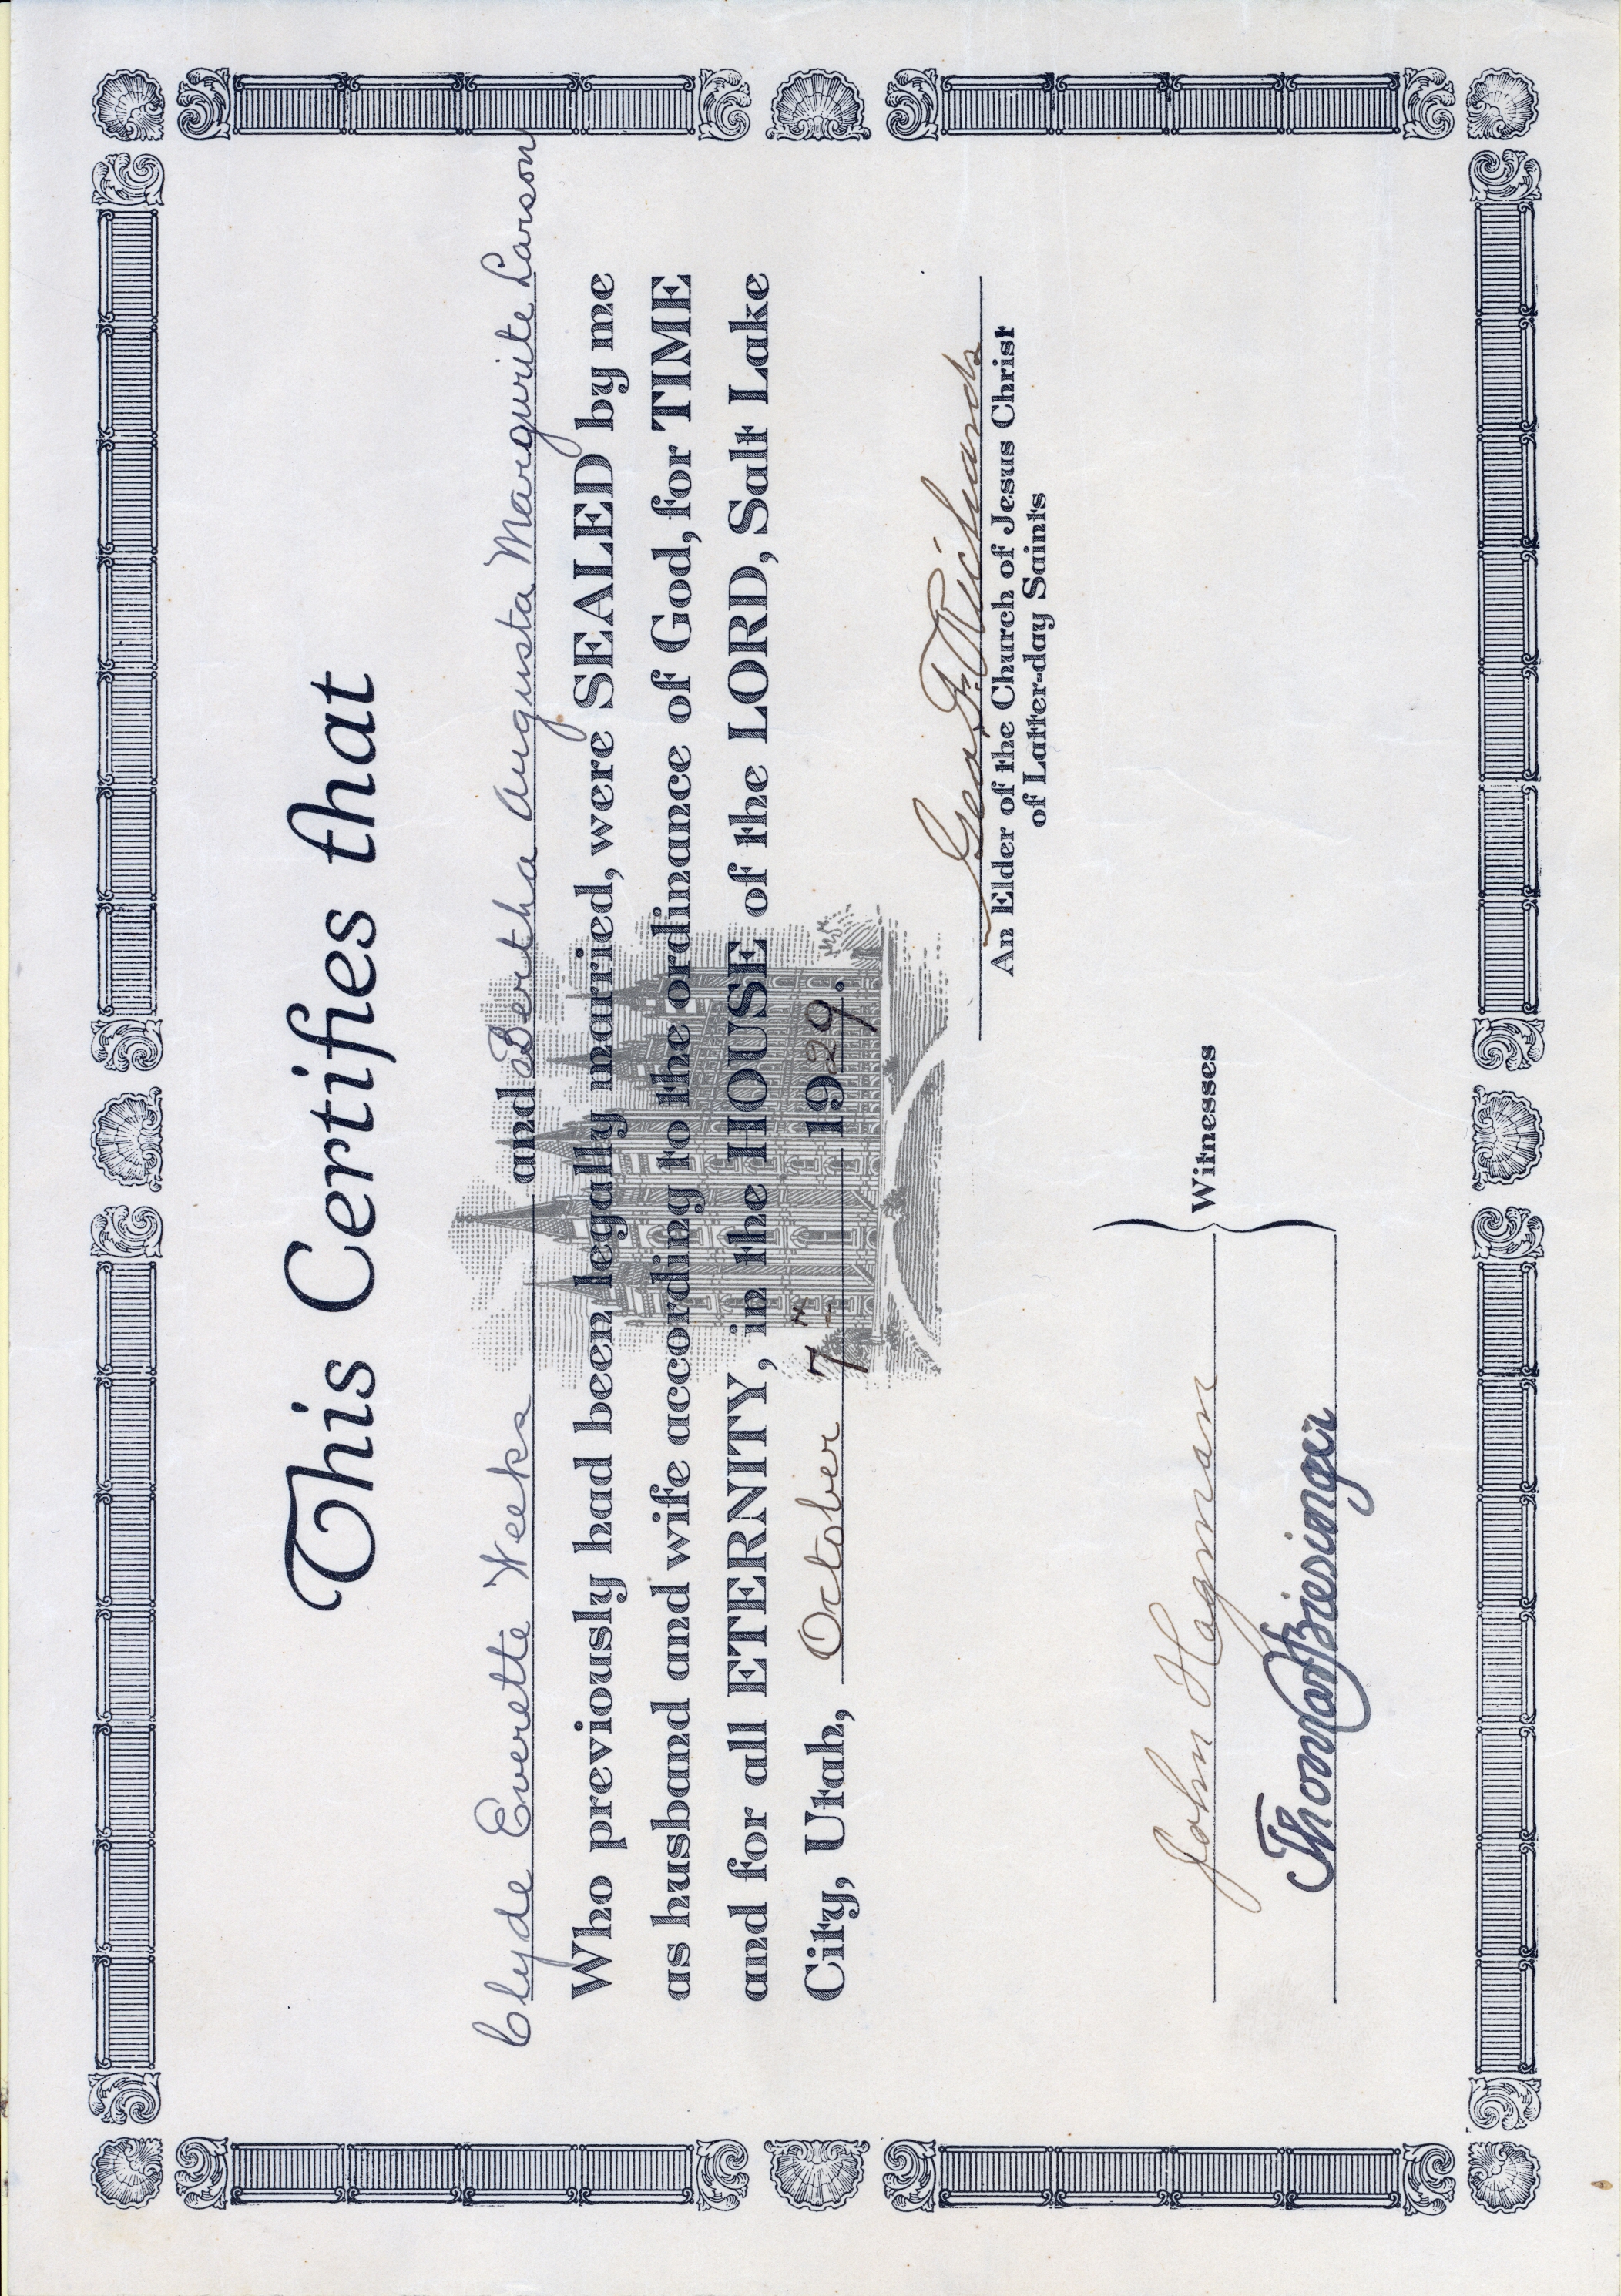 This Certifies that
Clyde Everette Weeks and Bertha Augusta Margurite Larson
Who previously had been legally married, were SEALED by me
as husband and wife according to the ordinance of God, for TIME
and for all ETERNITY, in the HOUSE of the LORD, Salt Lake
City, Utah, October 7th 1929.
Geo. F. Richards
An Elder of the Church of Jesus Christ
of Latter-day Saints
John Hagman
Witnesses
Thomas Biesinger